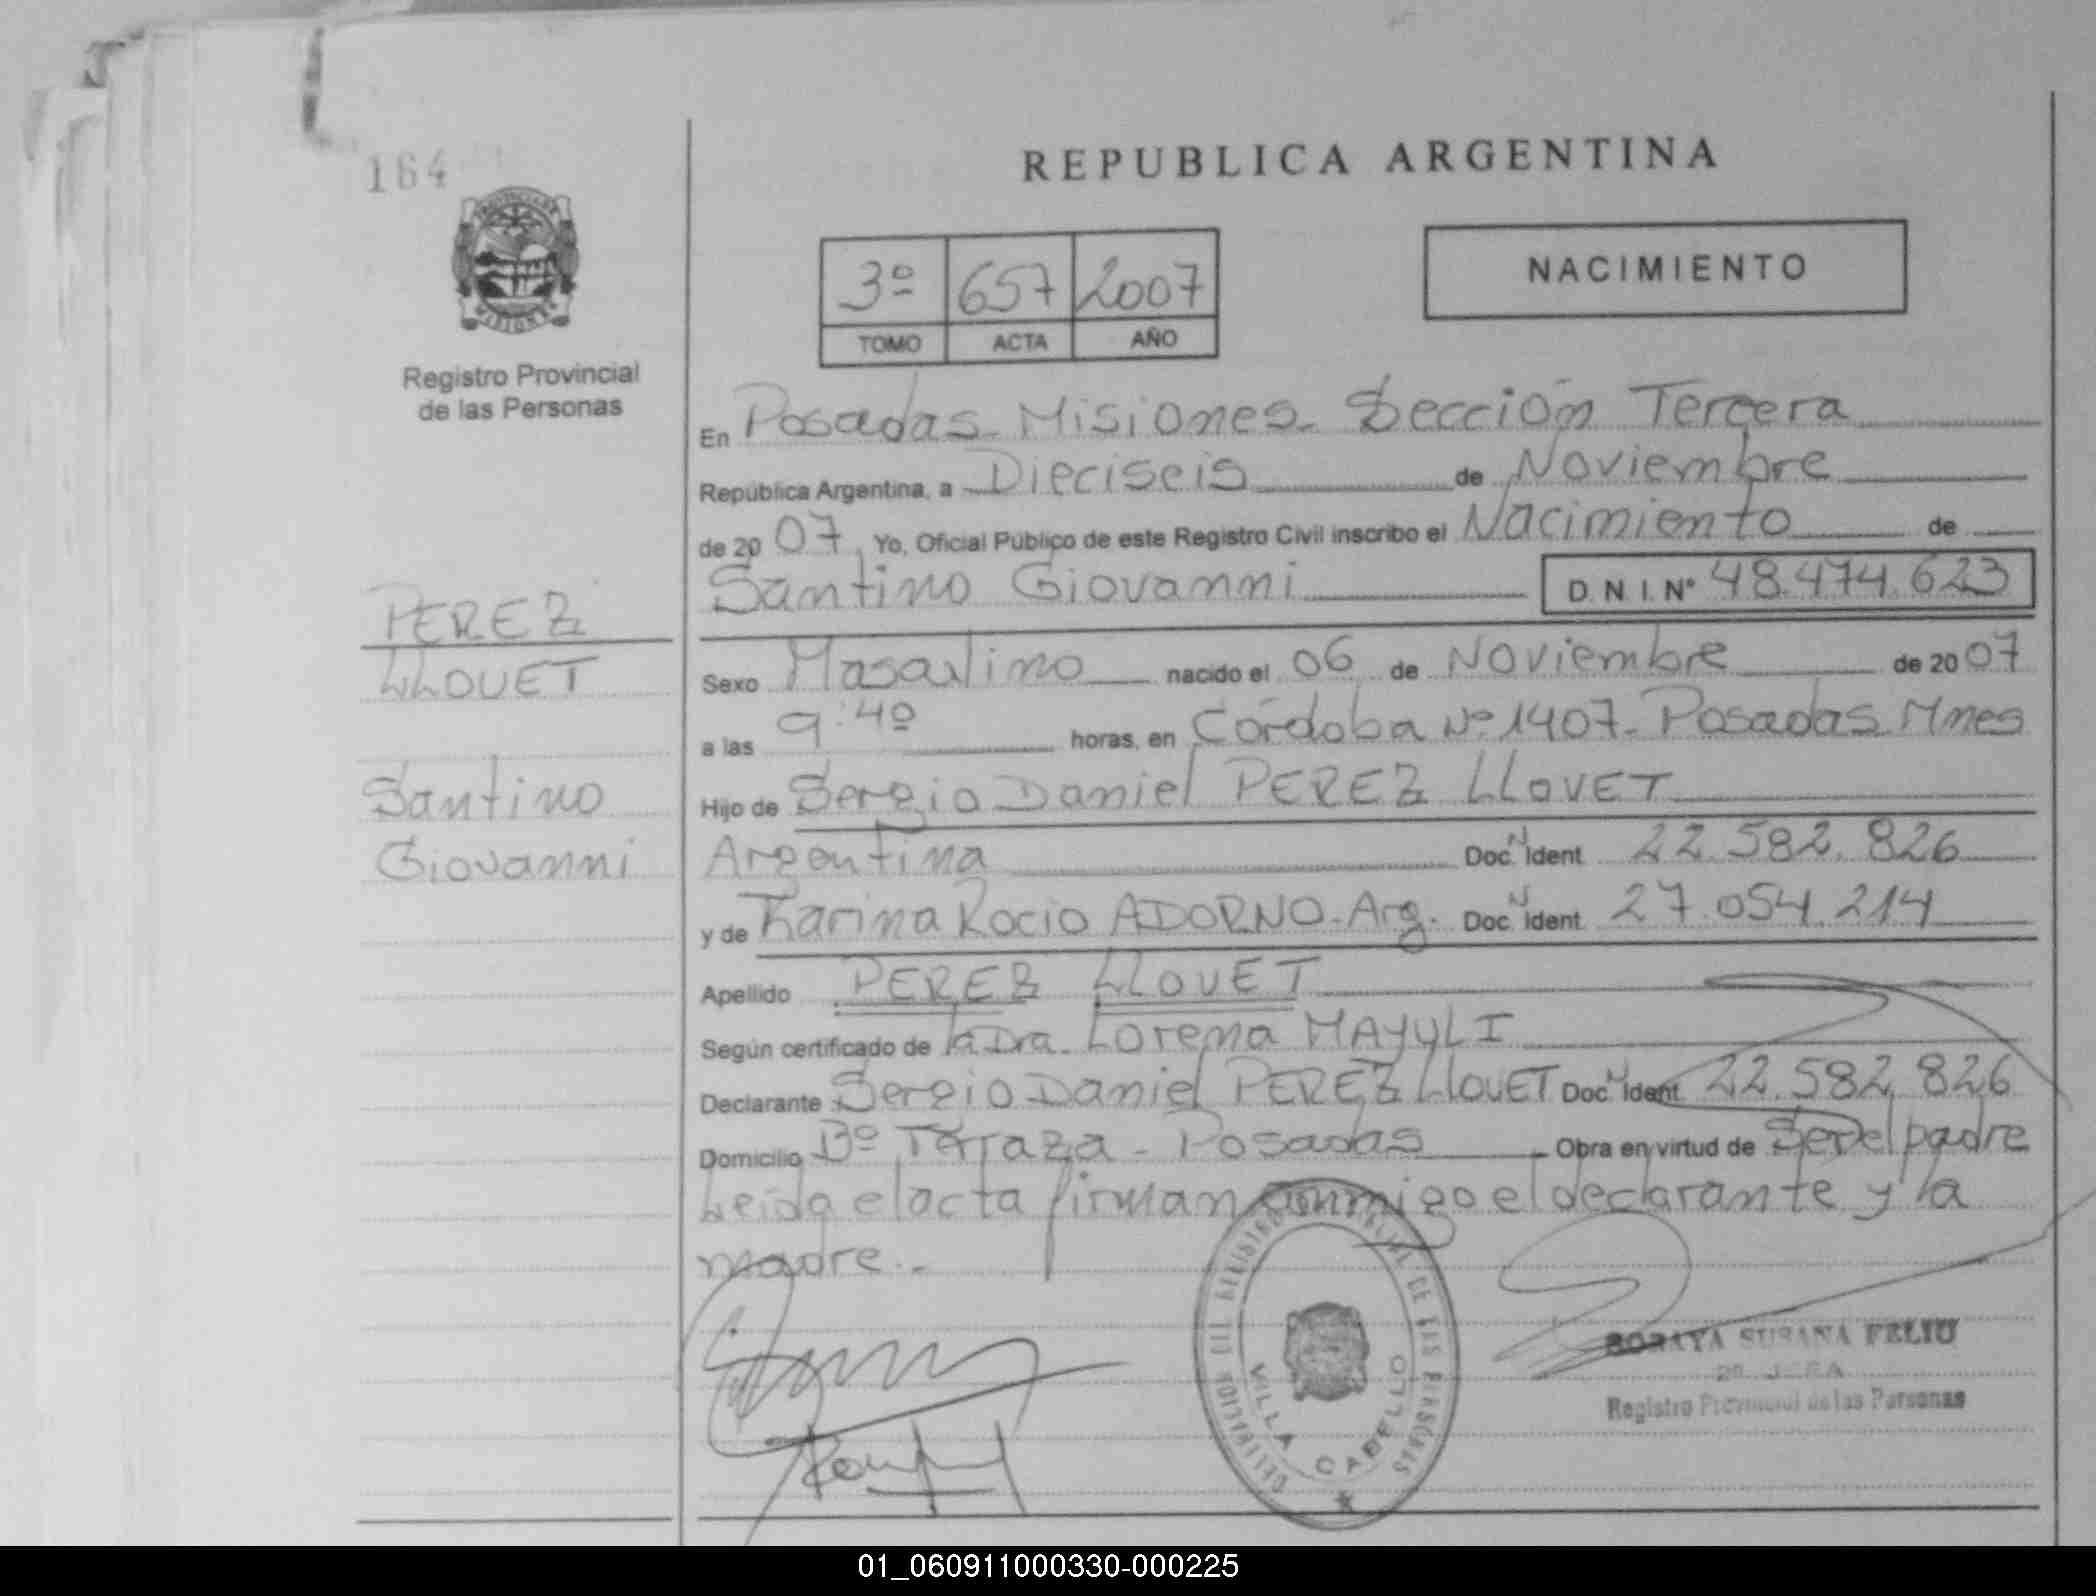 164
PROVINCIA DE
MISIONES
Registro Provincial
de las Personas
PEREZ
LLOVET
Santino
Giovanni
REPUBLICA ARGENTINA
3º 657 2007
TOMO ACTA AÑO
NACIMIENTO
En Posadas - Misiones - Sección Tercera
República Argentina, a Dieciseis de Noviembre
de 2007, Yo, Oficial Público de este Registro Civil inscribo el Nacimiento de
Santino Giovanni D.N.I. Nº 48.474.623
Sexo Masculino nacido el 06 de Noviembre de 2007
a las 9:40 horas, en Córdoba Nº 1407 - Posadas Mnes
Hijo de Sergio Daniel PEREZ LLOVET
Argentina Doc. Ident 22.582.826
y de Karina Rocio ADORNO - Arg. Doc. Ident. 27.054.214
Apellido PEREZ LLOVET
Según certificado de la Dra. Lorena MAYULI
Declarante Sergio Daniel PEREZ LLOVET Doc. Ident 22.582.826
Domicilio Bº Terraza - Posadas Obra en virtud de Ser el padre
Leida el acta firman conmigo el declarante y la
madre.-
DELEGACION DEL REGISTRO PROVINCIAL DE LAS PERSONAS
VILLA CABELLO
SORAYA SUSANA FELIU
Registro Provincial de las Personas
01_060911000330-000225